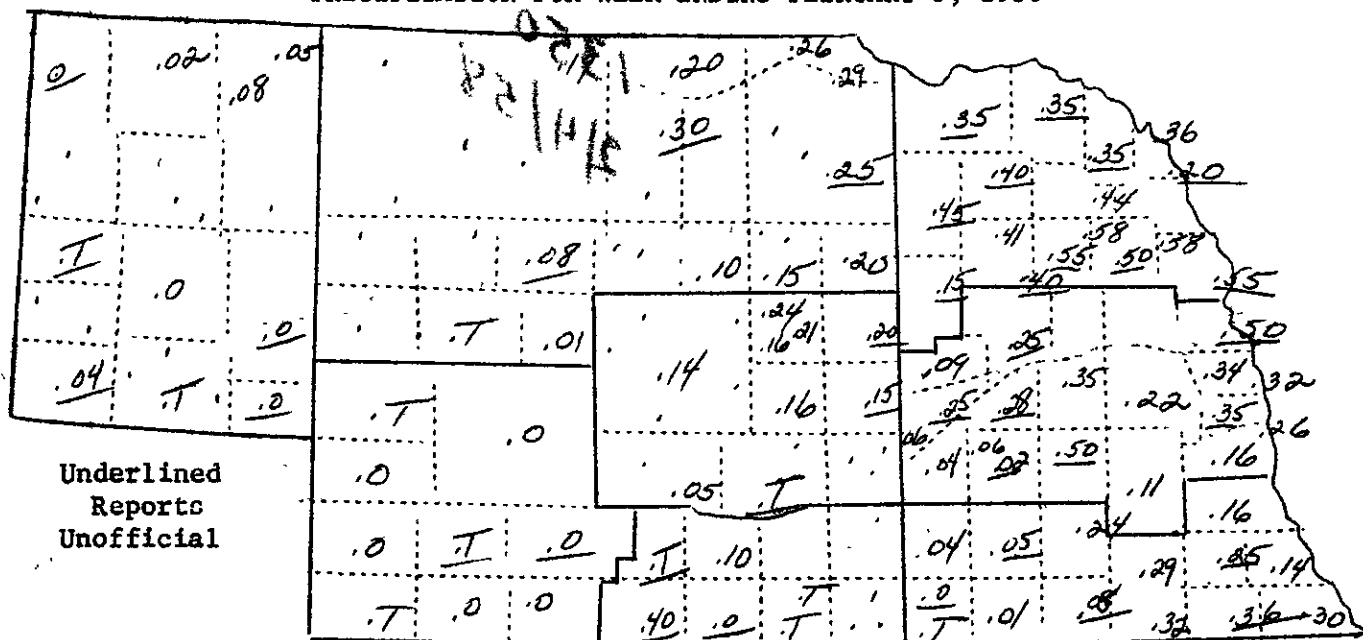 0 .02 .05 .08
.20 .26 .29
.30
.25
.35 .35 .36
.35 .20
.40
.45 .44
.41 .58 .38
.55 .50
.T
.0
.0
.08 .10 .15 .20
.15 .40 .55
.T .01
.24
.16 .21 .20
.25 .50
.04 .T .0
.14 .16 .15
.09 .35 .22 .34 .32
.25 .28 .35 .26
.T .0
.06 .04 .06 .02 .50 .16
.0
.05 T
.11 .16
Underlined
Reports
Unofficial
.0 .T .0 .T .10
.04 .05 .24 .29 .14
.T .0 .0 .40 .0 .T .T
.0 .T .01 .32 .36 .30